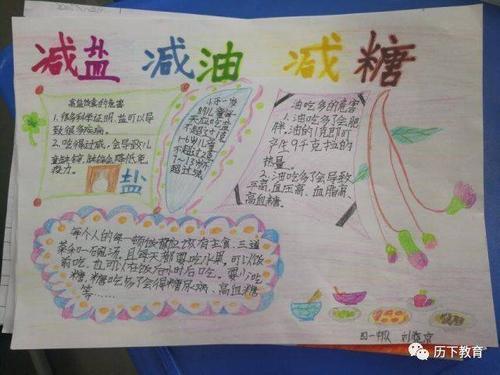 减盐 减油 减糖
高盐饮食的危害
1.很多科学证明,盐可以导
致很多疾病。
2.吃得过咸,会导致儿
童缺锌,肺炎会降低免
疫力。
盐
不超过
不超过2克
7~13岁不
超过
油吃多的危害
1.油吃多了会肥
胖,油的1克即可
产生9千克卡拉的
热量。
2.油吃多了会导致
高血压、血脂高、
高血糖。
每个人的每一顿饭都应该有主食、三道
菜和一碗汤,且每天都要吃水果。可以饭
前吃,也可以在饭后小时后吃。要少吃
糖,糖吃多了会得糖尿病、高血糖
等……
历下教育